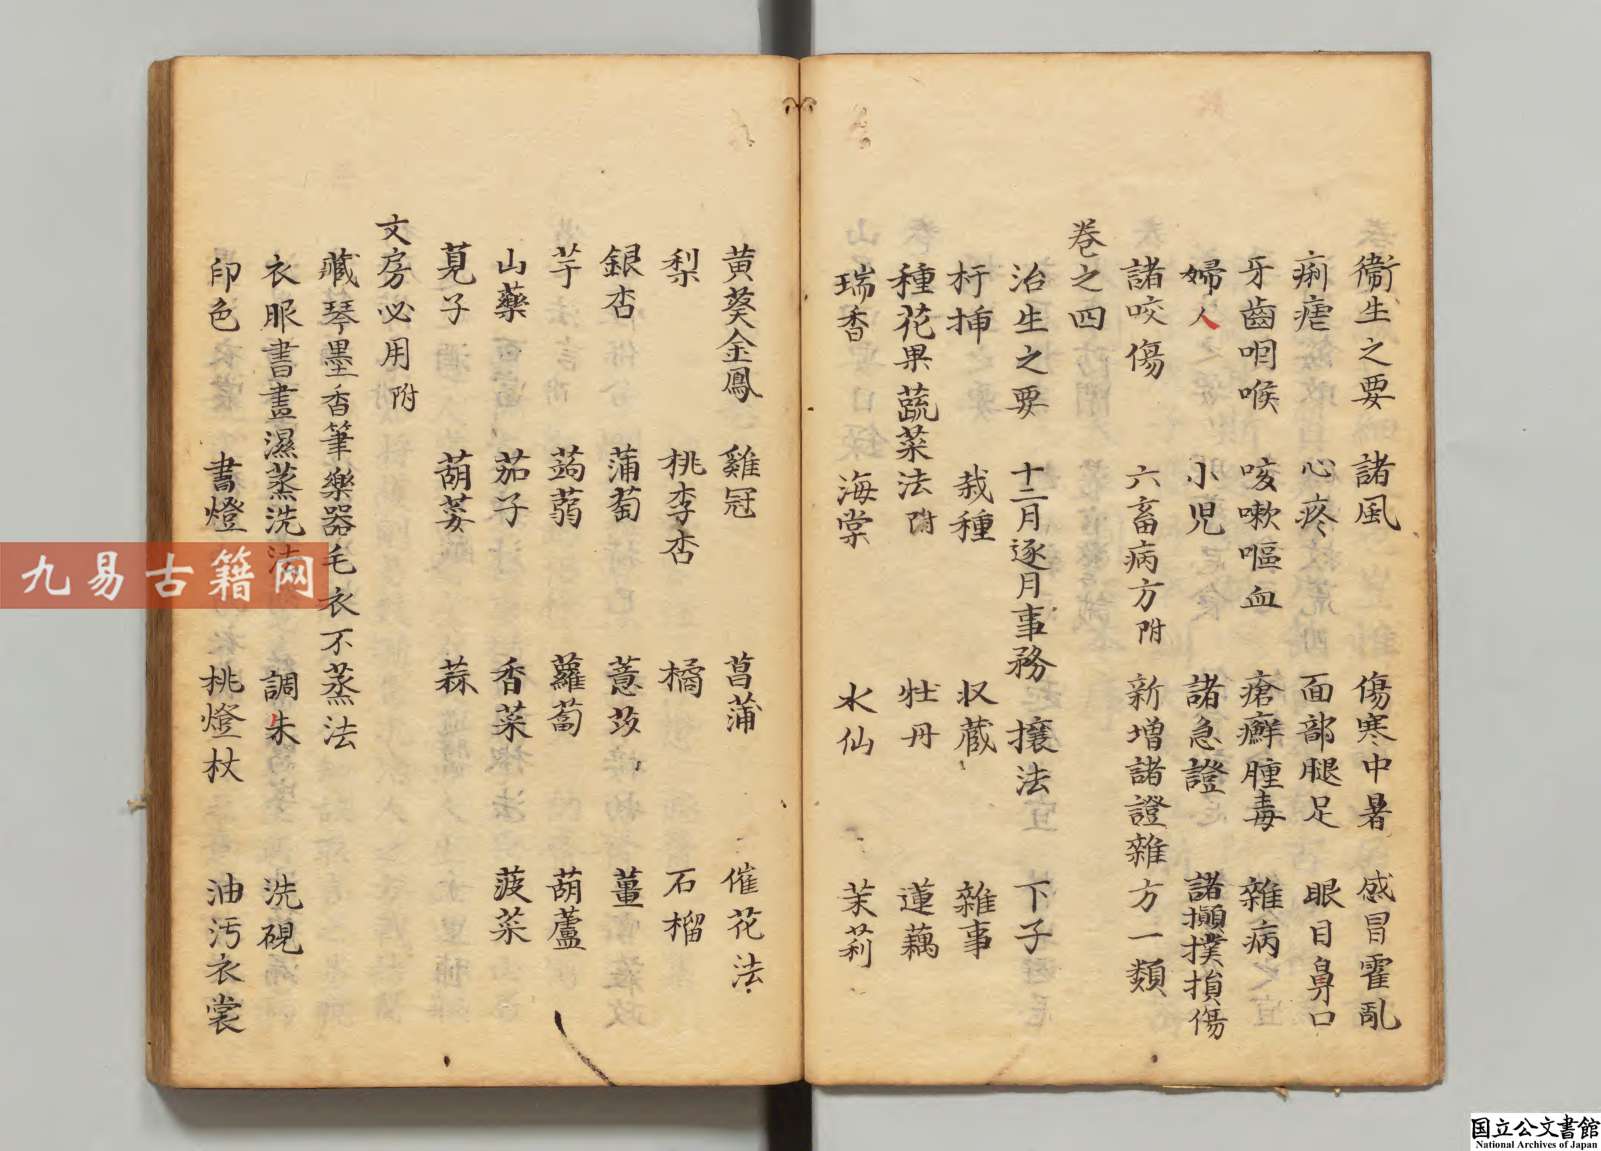 衞生之要 諸風 傷寒中暑 感冒霍亂
痢瘧 心疼 面部腿足 眼目鼻口
牙齒咽喉 咳嗽嘔血 瘡癬腫毒 雜病
婦人 小児 諸急證 諸攧撲損傷
諸咬傷 六畜病方附 新増諸證雜方一類
卷之四
治生之要 十二月逐月事務 攘法 下子
杆挿 栽種 収蔵 雜事
種花果蔬菜法附 牡丹 蓮藕
瑞香 海棠 水仙 茉莉
黄葵金鳳 雞冠 菖蒲 催花法
梨 桃李杏 橘 石榴
銀杏 蒲萄 薏苡 薑
芋 蒟蒻 蘿蔔 葫蘆
山藥 茄子 香菜 菠菜
莧子 葫荽 蒜
文房必用附
藏琴墨香筆樂器毛衣不蒸法
衣服書畫濕蒸洗法 調朱 洗硯
印色 書燈 桃燈杖 油污衣裳
九易古籍网
国立公文書館
National Archives of Japan